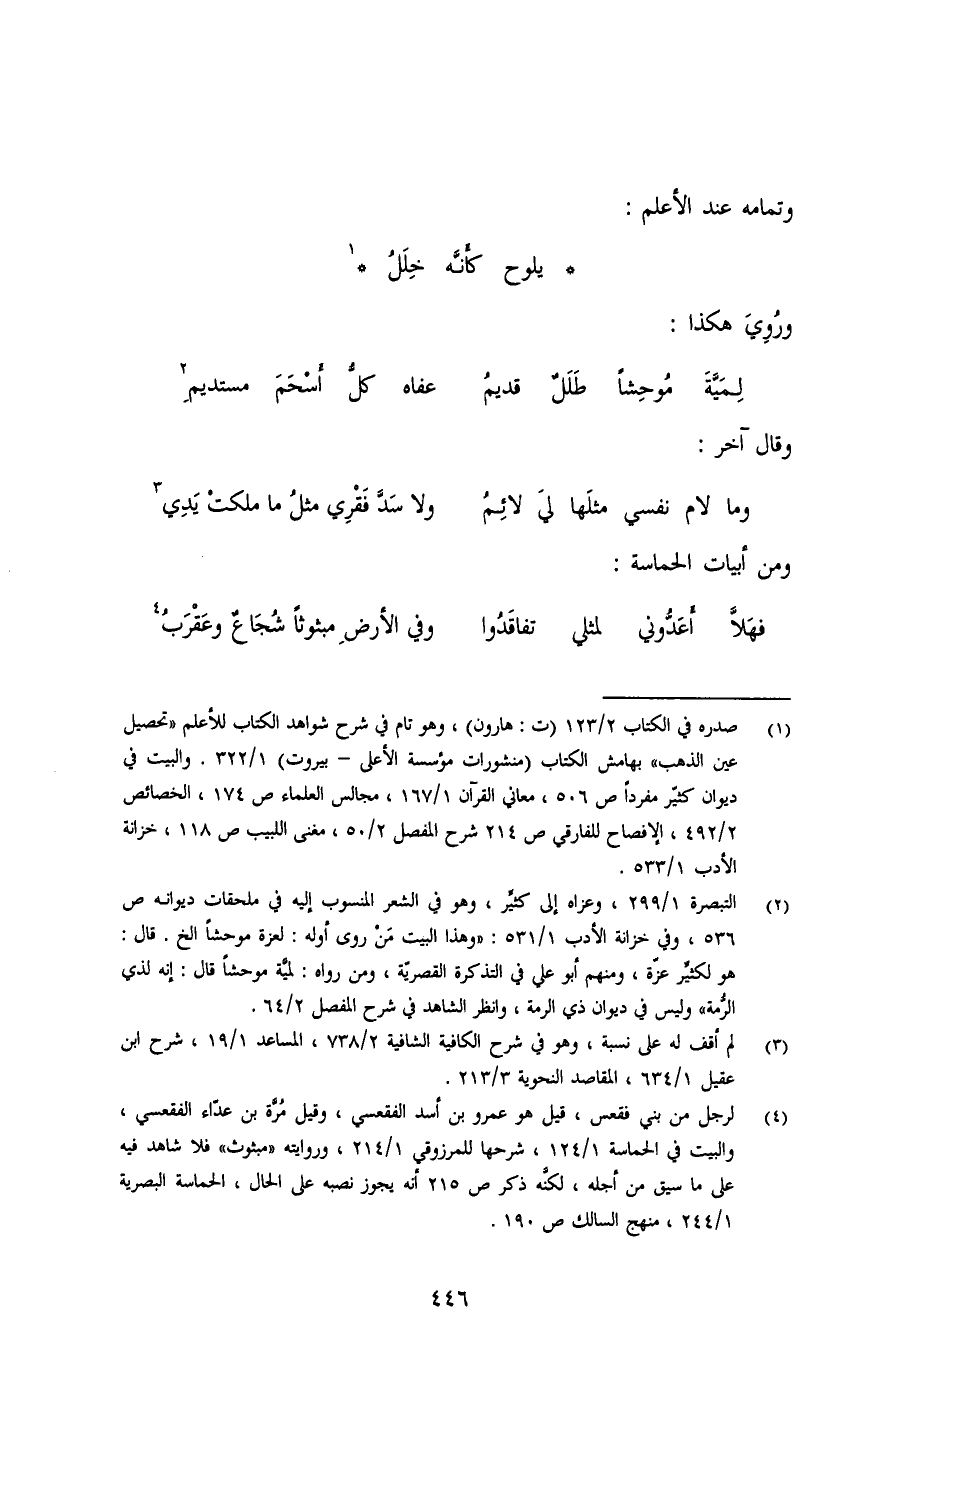 وتمامه عند الأعلم :
* يلوح كأنَّه خِلَلُ *١
ورُوِيَ هكذا :
لِمَيَّةَ مُوحِشاً طَلَلٌ قديمُ عفاه كلُّ أسْحَمَ مستديمِ٢
وقال آخر :
وما لام نفسي مثلَها ليَ لائِمُ ولا سَدَّ فَقْرِي مثلُ ما ملكتْ يَدِي٣
ومن أبيات الحماسة :
فهَلاَّ أعَدُّوني لمثلي تفاقَدُوا وفي الأرضِ مبثوثاً شُجَاعٌ وعَقْرَبُ٤
(١) صدره في الكتاب ١٢٣/٢ (ت : هارون) ، وهو تام في شرح شواهد الكتاب للأعلم «تحصيل
عين الذهب» بهامش الكتاب (منشورات مؤسسة الأعلى – بيروت) ٣٢٢/١ . والبيت في
ديوان كثيّر مفرداً ص ٥٠٦ ، معاني القرآن ١٦٧/١ ، مجالس العلماء ص ١٧٤ ، الخصائص
٤٩٢/٢ ، الإفصاح للفارقي ص ٢١٤ شرح المفصل ٥٠/٢ ، مغنى اللبيب ص ١١٨ ، خزانة
الأدب ٥٣٣/١ .
(٢) التبصرة ٢٩٩/١ ، وعزاه إلى كثيٍّر ، وهو في الشعر المنسوب إليه في ملحقات ديوانه ص
٥٣٦ ، وفي خزانة الأدب ٥٣١/١ : «وهذا البيت مَنْ روى أوله : لعزة موحشاً الخ . قال :
هو لكثيٍّر عزّة ، ومنهم أبو علي في التذكرة القصريّة ، ومن رواه : لميَّة موحشاً قال : إنه لذي
الرُّمة» وليس في ديوان ذي الرمة ، وانظر الشاهد في شرح المفصل ٦٤/٢ .
(٣) لم أقف له على نسبة ، وهو في شرح الكافية الشافية ٧٣٨/٢ ، المساعد ١٩/١ ، شرح ابن
عقيل ٦٣٤/١ ، المقاصد النحوية ٢١٣/٣ .
(٤) لرجل من بني فقعس ، قيل هو عمرو بن أسد الفقعسي ، وقيل مُرَّة بن عدّاء الفقعسي ،
والبيت في الحماسة ١٢٤/١ ، شرحها للمرزوقي ٢١٤/١ ، وروايته «مبثوث» فلا شاهد فيه
على ما سيق من أجله ، لكنَّه ذكر ص ٢١٥ أنه يجوز نصبه على الحال ، الحماسة البصرية
٢٤٤/١ ، منهج السالك ص ١٩٠ .
٤٤٦